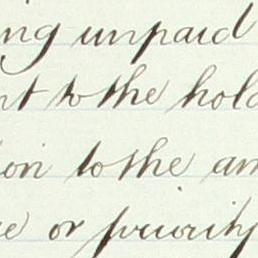 ing unpaid
nt to the hold
ion to the am
e or priority